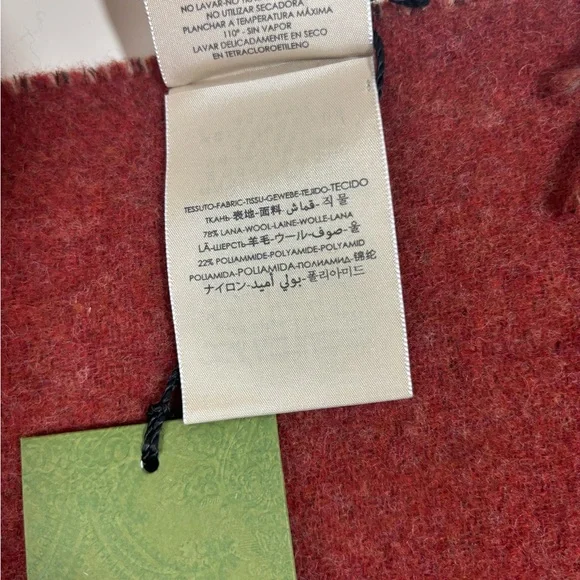 NO LAVAR-NO
NO UTILIZAR SECADORA
PLANCHAR A TEMPERATURA MÁXIMA
110° - SIN VAPOR
LAVAR DELICADAMENTE EN SECO
EN TETRACLOROETILENO
TESSUTO-FABRIC-TISSU-GEWEBE-TEJIDO-TECIDO
ТКАНЬ-表地-面料-قماش-직물
78% LANA-WOOL-LAINE-WOLLE-LANA
LÃ-ШЕРСТЬ-羊毛-ウール-صوف-울
22% POLIAMMIDE-POLYAMIDE-POLYAMID
POLIAMIDA-POLIAMIDA-ПОЛИАМИД-锦纶
ナイロン-بولي أميد-폴리아미드